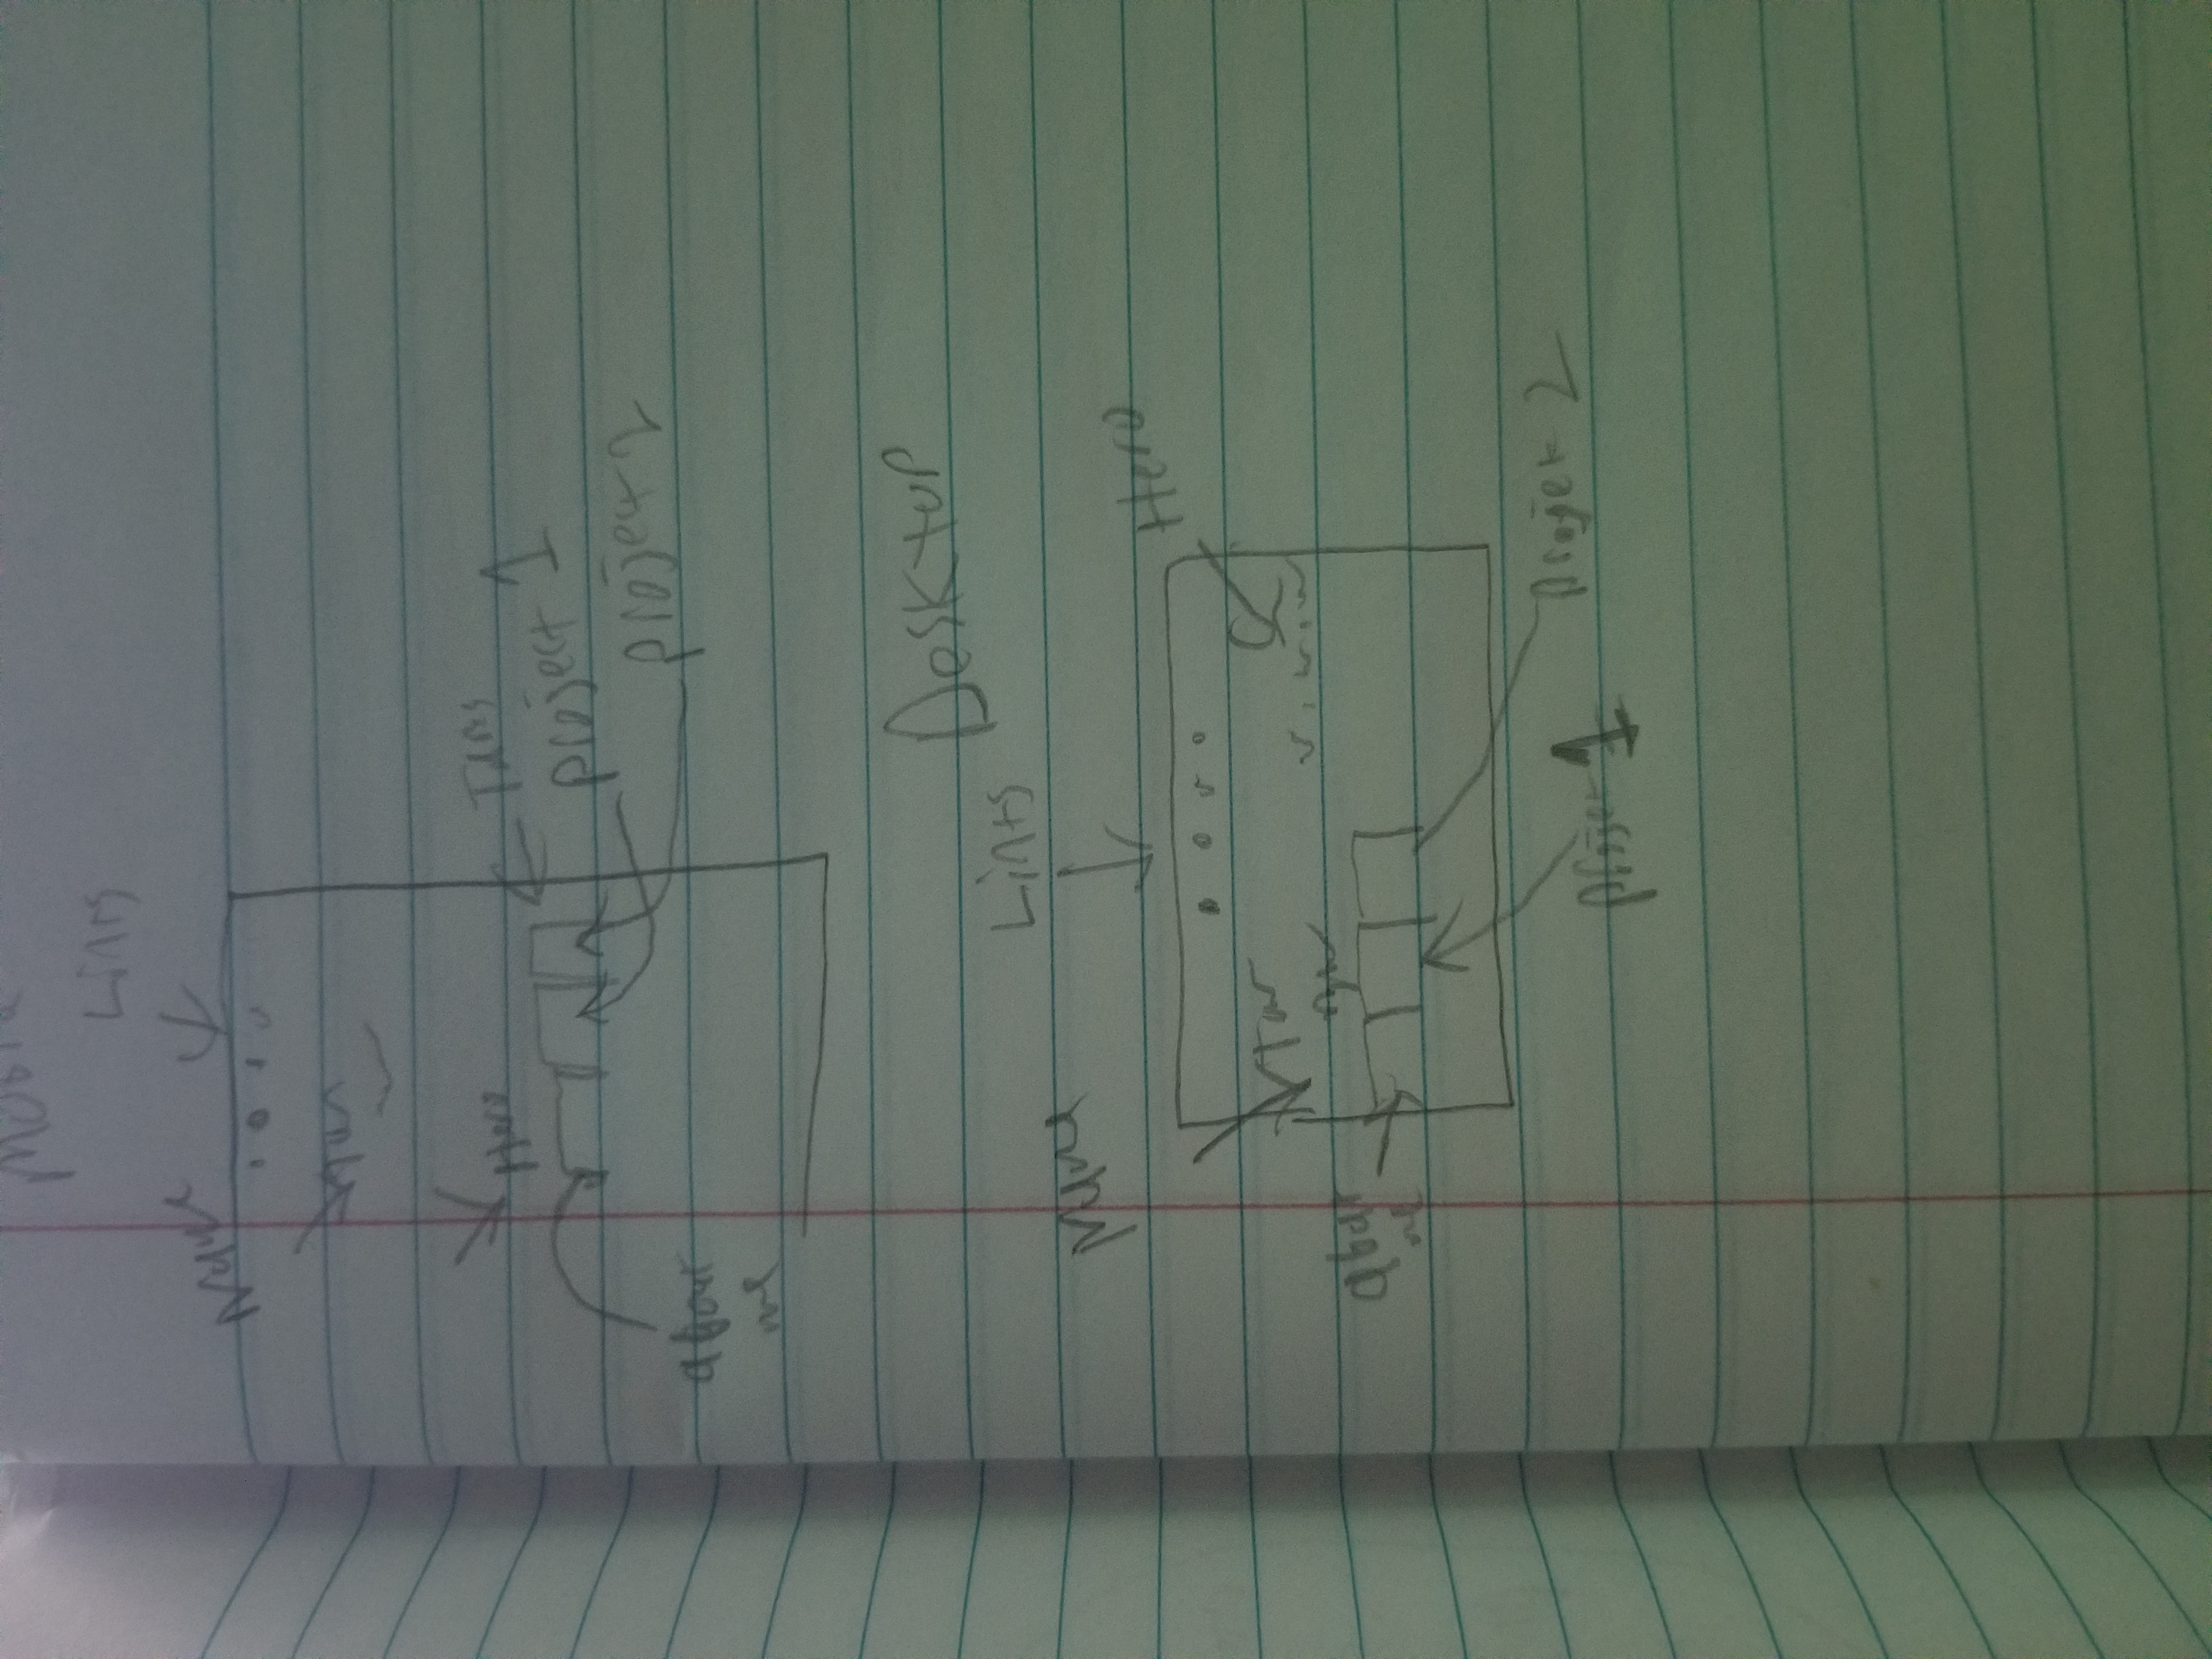 Links
Name
Hero
Project 1
Project 2
about
me
Desktop
Links
Name
Hero
about
me
Projek 2
Projec 1